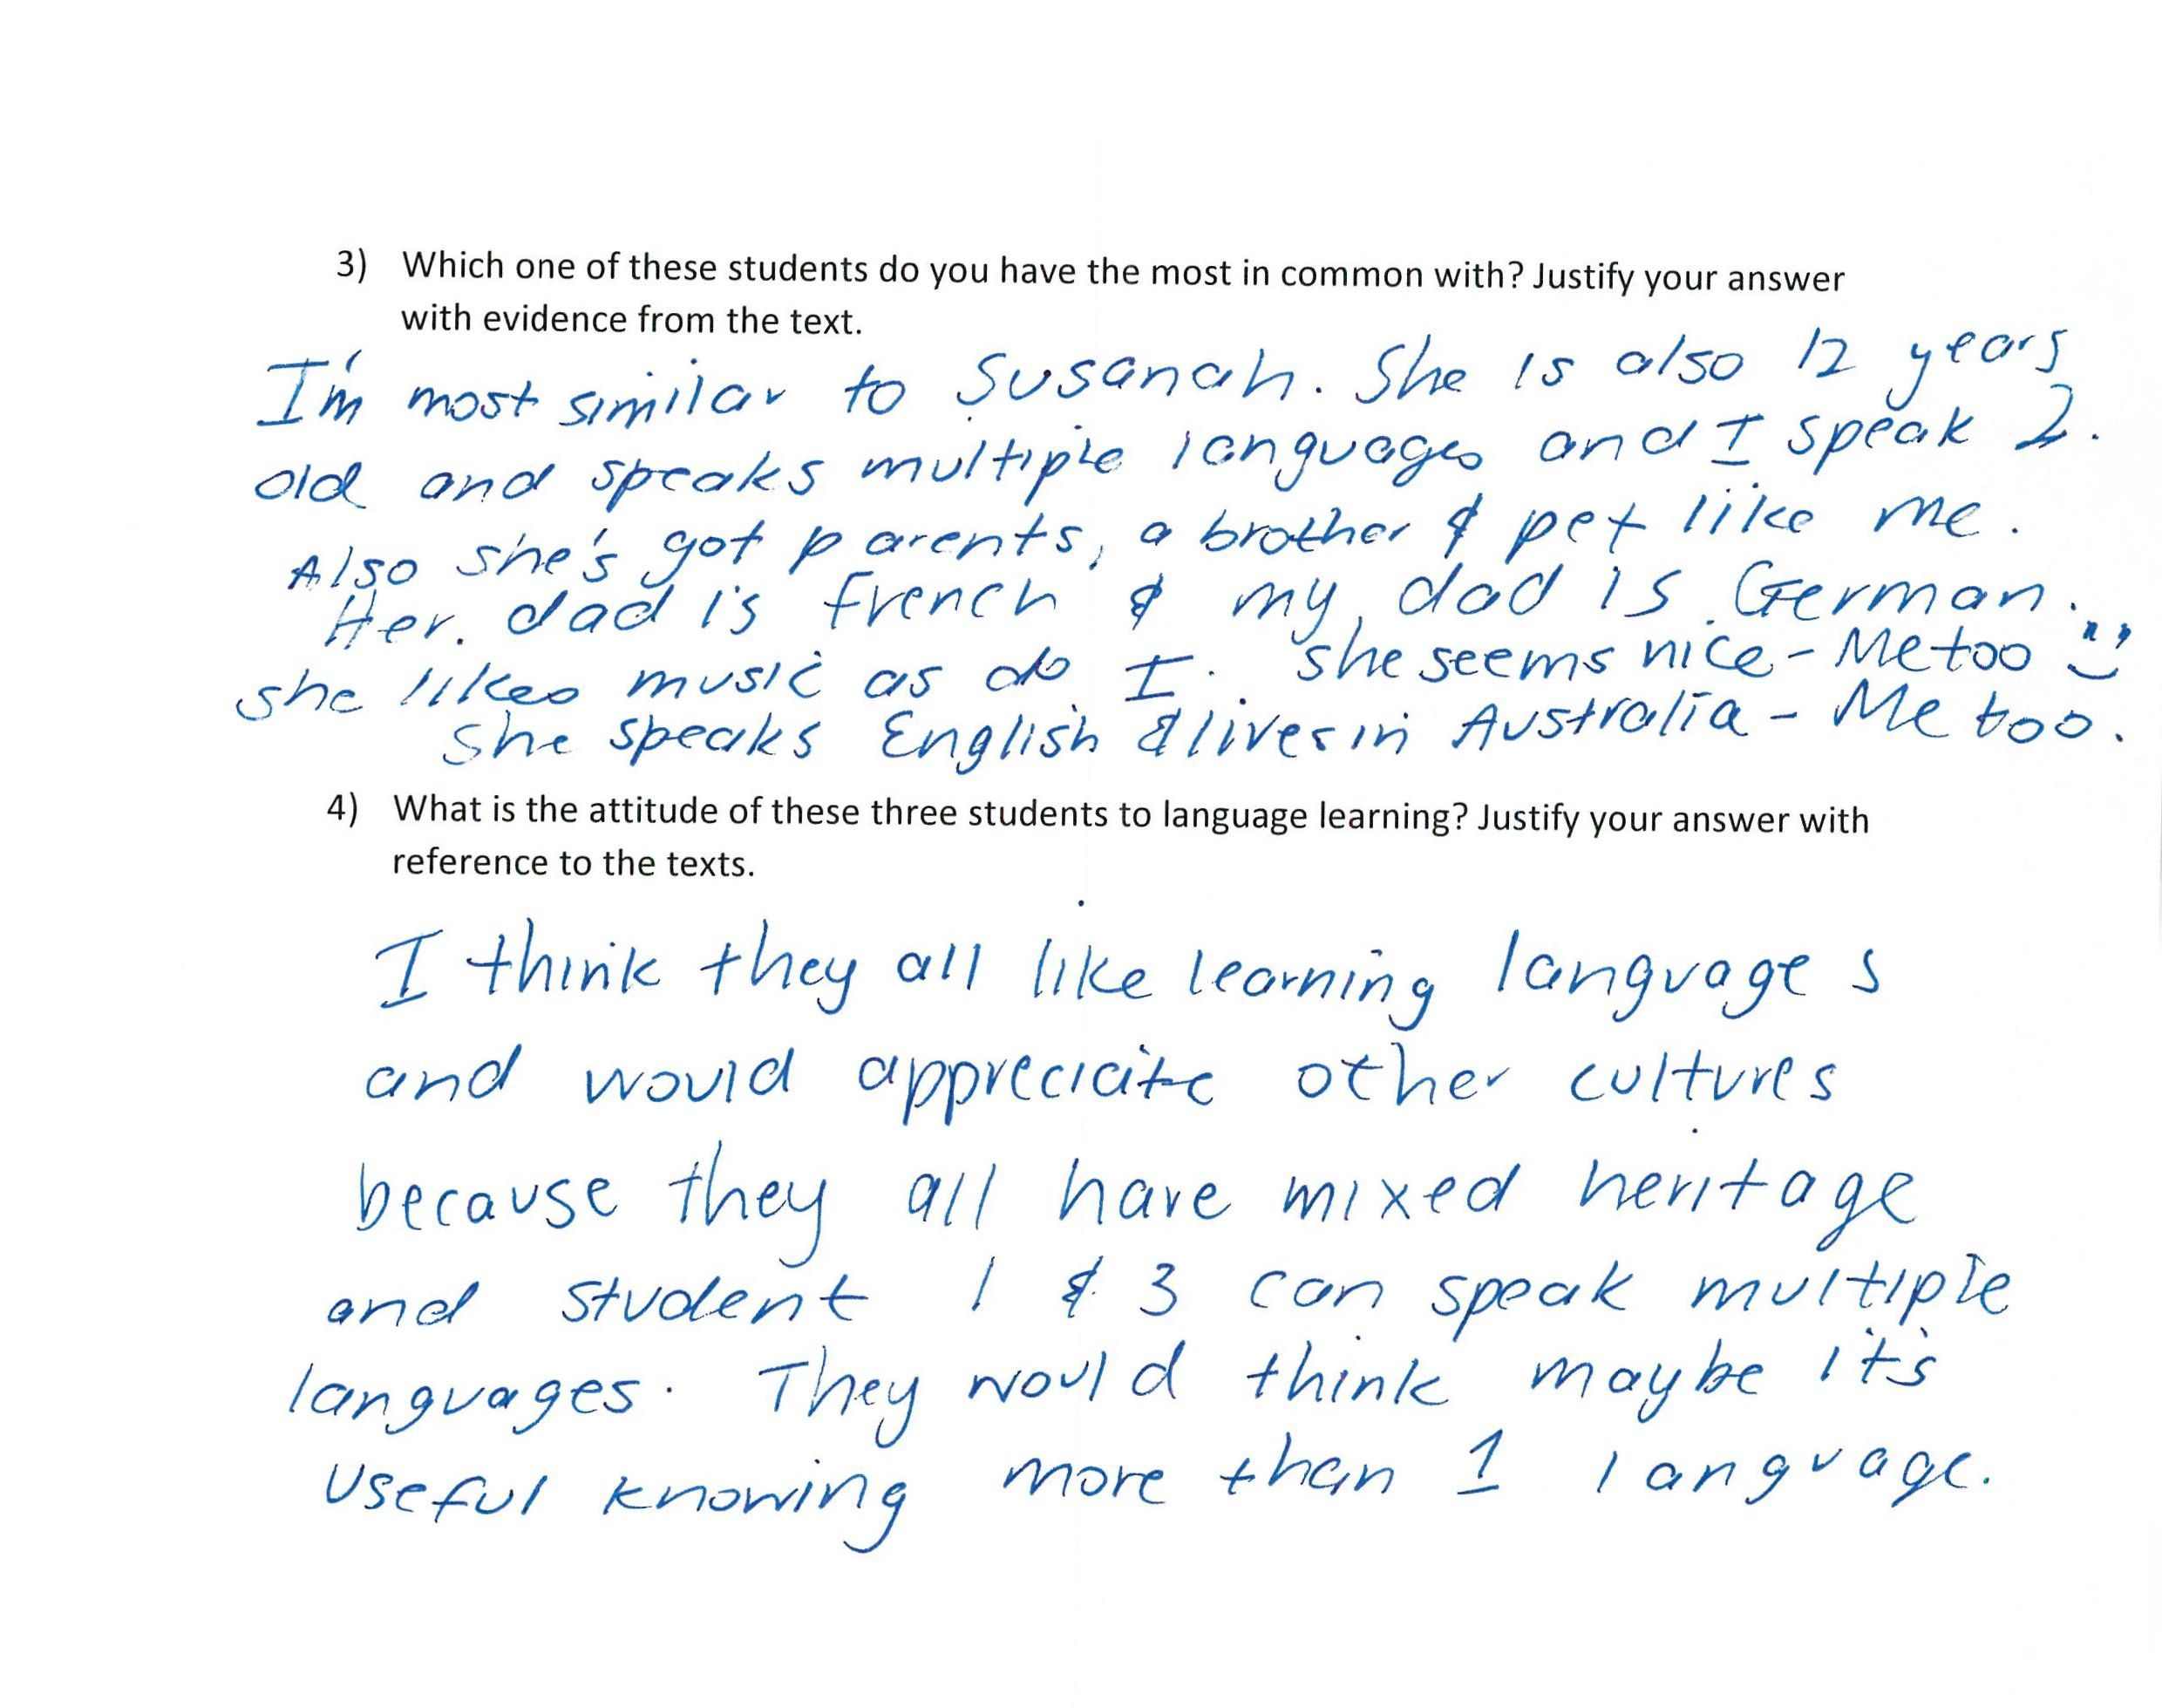 3) Which one of these students do you have the most in common with? Justify your answer
with evidence from the text.
I'm most similar to Susanah. She is also 12 years
old and speaks multiple languages and I speak 2.
Also she's got parents, a brother & pet like me.
Her dad is French & my dad is German.
she likes music as do I. she seems nice - Me too :)
She speaks English & lives in Australia - Me too.
4) What is the attitude of these three students to language learning? Justify your answer with
reference to the texts.
I think they all like learning languages
and would appreciate other cultures
because they all have mixed heritage
and student 1 & 3 can speak multiple
languages. They would think maybe it's
useful knowing more than 1 language.